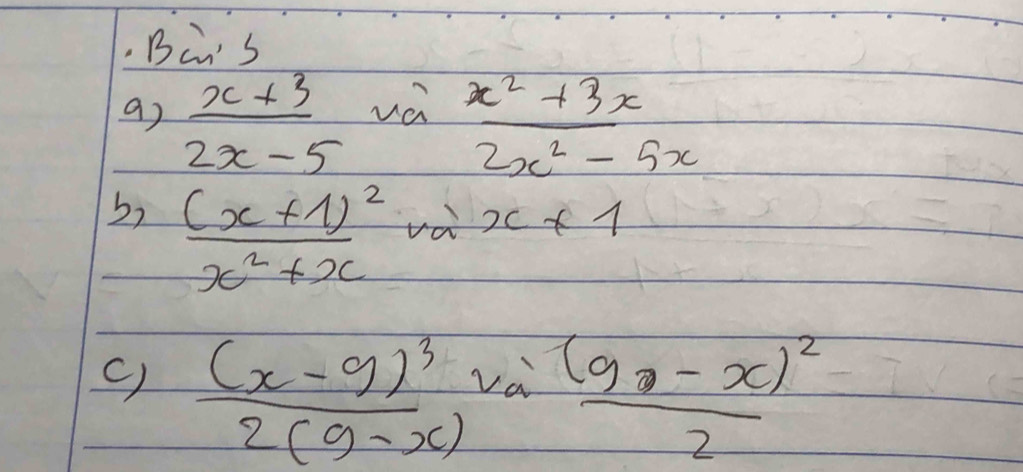 . Bài 5
a) (x + 3)/(2x - 5) và (x² + 3x)/(2x² - 5x)
b) (x + 1)²/(x² + x) và x + 1
c) (x - 9)³/(2(9 - x)) và (9 - x)²/2